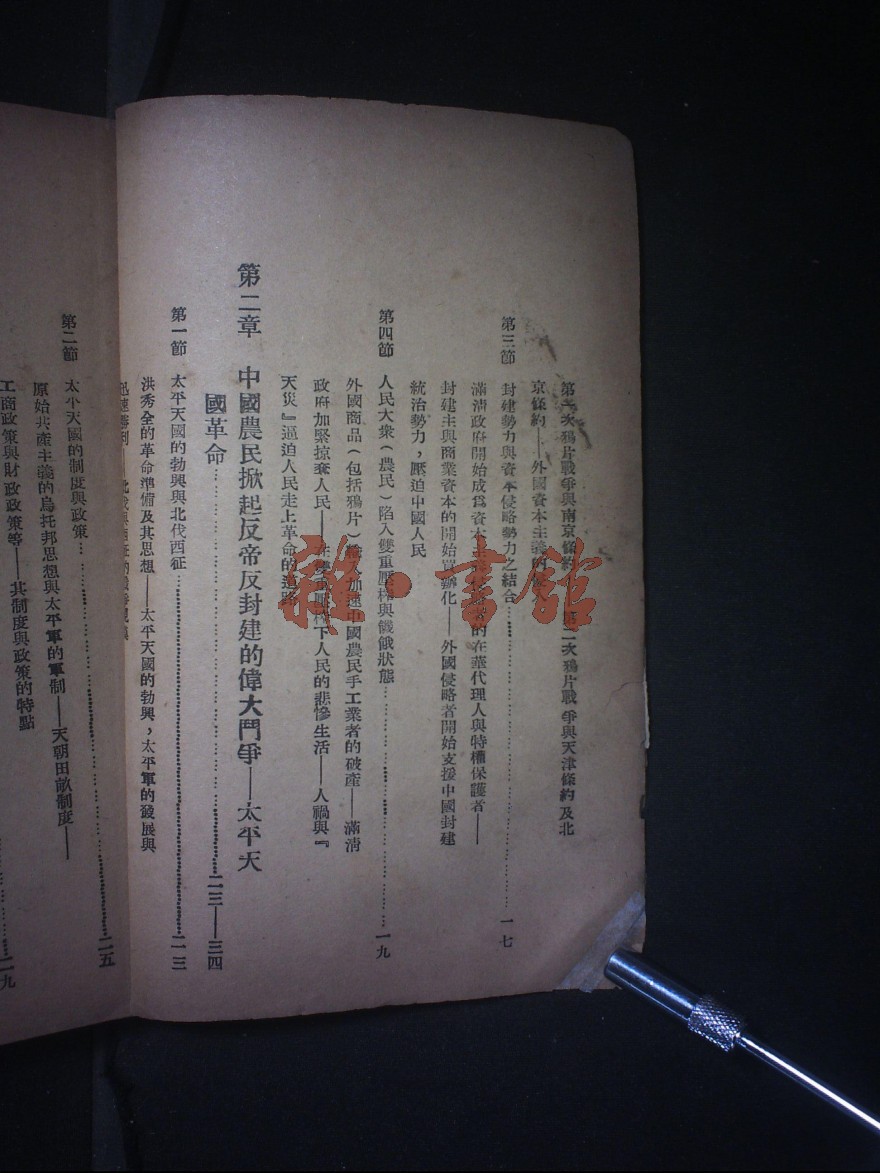 第一次鴉片戰爭與南京條約——第二次鴉片戰爭與天津條約及北
京條約——外國資本主義的
第三節 封建勢力與資本侵略勢力之結合……一七
滿清政府開始成爲資本主義 者的在華代理人與特權保護者——
封建主與商業資本的開始買辦化——外國侵略者開始支援中國封建
統治勢力，壓迫中國人民
第四節 人民大衆（農民）陷入雙重壓榨與饑餓狀態……一九
外國商品（包括鴉片）輸入加速中國農民手工業者的破產——滿清
政府加緊掠奪人民——在雙重壓榨下人民的悲慘生活——人禍與『
天災』逼迫人民走上革命的道路
第二章 中國農民掀起反帝反封建的偉大鬥爭——太平天
國革命……二三——三四
第一節 太平天國的勃興與北伐西征……二三
洪秀全的革命準備及其思想——太平天國的勃興，太平軍的發展與
迅速勝利——北伐與西征的
第二節 太平天國的制度與政策……二五
原始共產主義的烏托邦思想與太平軍的軍制——天朝田畝制度——
工商政策與財政政策等——其制度與政策的特點
二九
雜·書館